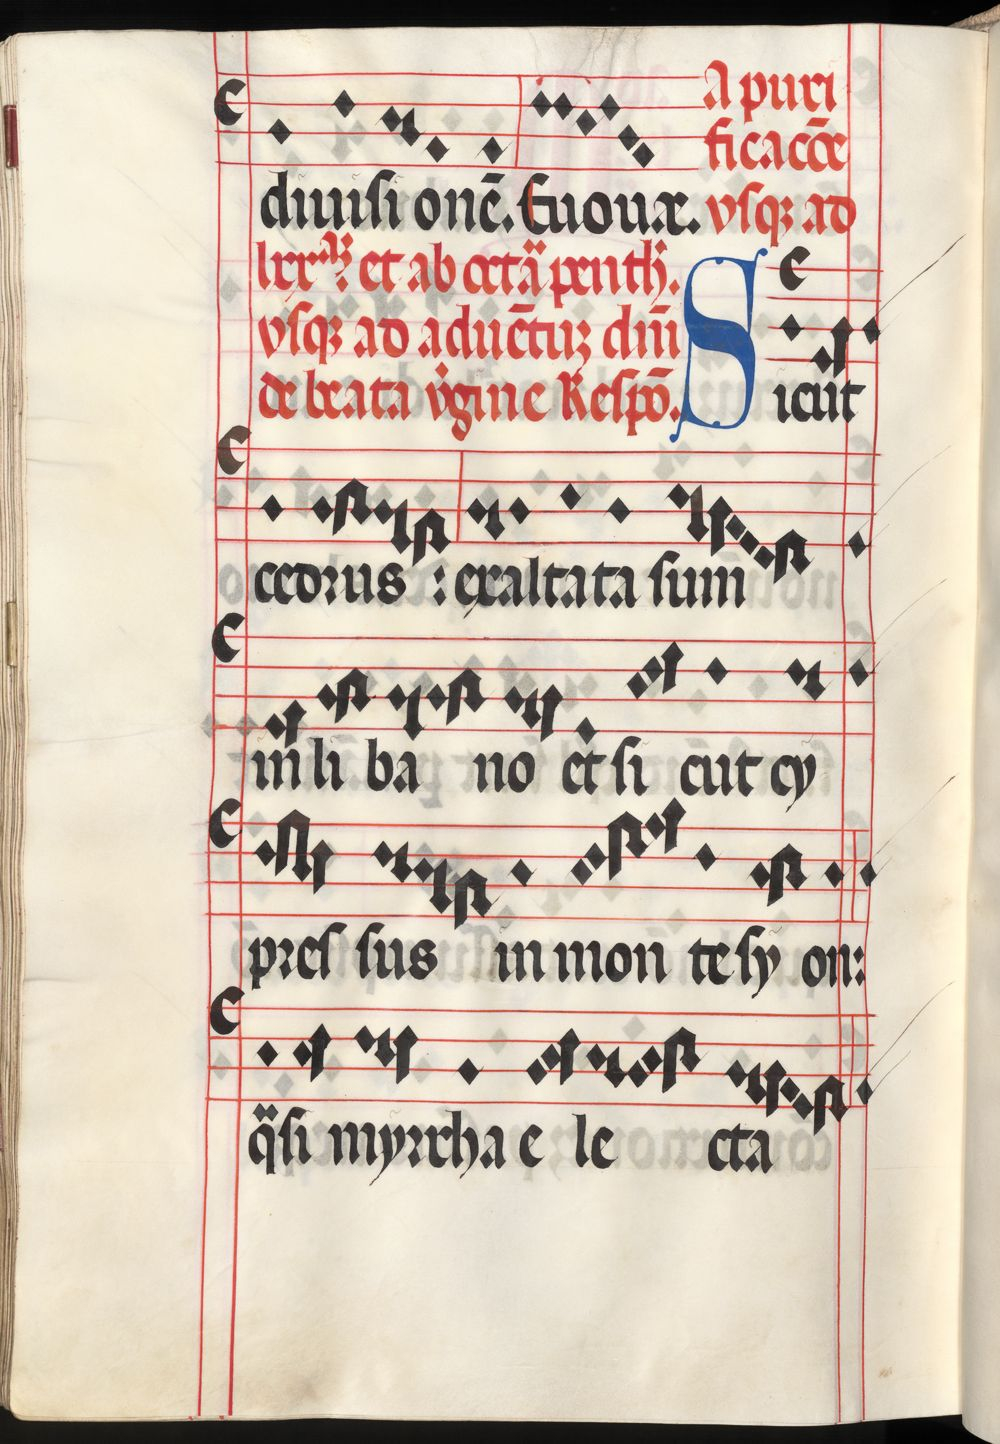 A puri
ficacōe
diuisi onē. Euouæ. vsqꝫ ad
lxx et ab octā penth.
vsqꝫ ad aduētuꝫ dn̄i
de beata v̇gine Respō. S
icut
cedrus : exaltata sum
in li ba no et si cut cy
pres sus in mon te sy on:
q̈si myrrha e le cta